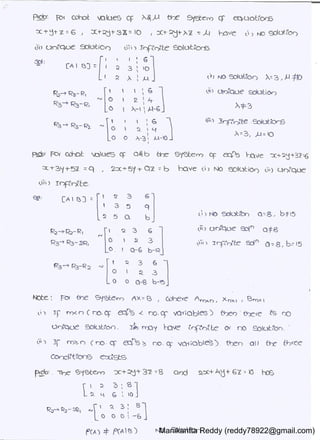 Pb: For what values of λ & μ the system of equations
x+y+z=6 , x+2y+3z=10 , x+2y+λz=μ have (i) No solution
(ii) Unique solution (iii) Infinite solutions
Sol: [A|B] = [1 1 1 | 6
1 2 3 | 10
1 2 λ | μ]
(i) No solution λ=3, μ≠10
R₂→R₂-R₁
R₃→R₃-R₁
~ [1 1 1 | 6
0 1 2 | 4
0 1 λ-1 | μ-6]
(ii) Unique solution
λ≠3
R₃→R₃-R₂ ~ [1 1 1 | 6
0 1 2 | 4
0 0 λ-3 | μ-10]
(iii) Infinite solutions
λ=3, μ=10
Pb: For what values of a & b the system of eqⁿs have x+2y+3z=6
x+3y+5z=9 , 2x+5y+az=b have (i) No solution (ii) Unique
(iii) Infinite.
Sol: [A|B] = [1 2 3 6
1 3 5 9
2 5 a b]
(i) No solution a=8, b≠15
R₂→R₂-R₁
R₃→R₃-2R₁
~ [1 2 3 6
0 1 2 3
0 1 a-6 b-12]
(ii) Unique solⁿ a≠8
(iii) Infinite solⁿ a=8, b=15
R₃→R₃-R₂ ~ [1 2 3 6
0 1 2 3
0 0 a-8 b-15]
Note: For the system AX=B , where
(i) If m<n (no. of eqⁿs < no. of variables) then there is no
unique solution. It may have infinite or no solution.
(ii) If m≥n (no. of eqⁿs ≥ no. of variables) then all the three
conditions exists.
Pb: The system x+2y+3z=8 and 2x+4y+6z=10 has
[1 2 3 | 8
2 4 6 | 10]
R₂→R₂-2R₁ ~ [1 2 3 | 8
0 0 0 | -6]
ρ(A) ≠ ρ(A|B)
Manikanta Reddy (reddy78922@gmail.com)